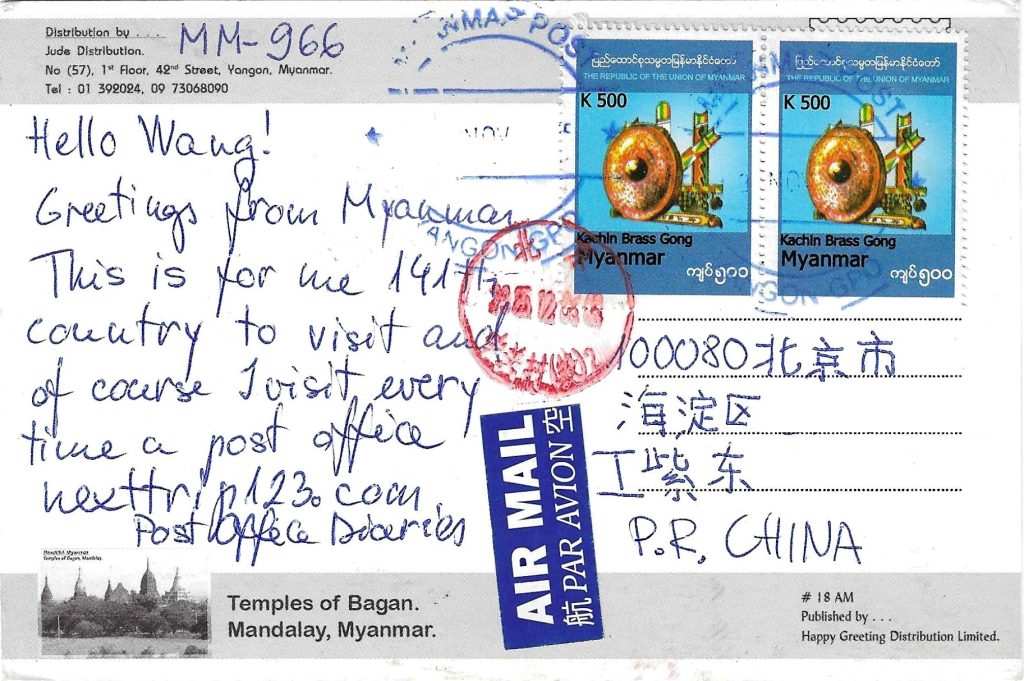 Distribution by . . .
Jude Distribution.
No (57), 1st Floor, 42nd Street, Yangon, Myanmar.
Tel : 01 392024, 09 73068090
MM-966
Hello Wang!
Greetings from Myanmar
This is for me 141th
country to visit and
of course I visit every
time a post office
nexttrip123.com
Post Office Diaries
MYANMAR POST
NOV
YANGON GPO
ပြည်ထောင်စုသမ္မတမြန်မာနိုင်ငံတော်
THE REPUBLIC OF THE UNION OF MYANMAR
K 500
Kachin Brass Gong
Myanmar
ကျပ်၅၀၀
ပြည်ထောင်စုသမ္မတမြန်မာနိုင်ငံတော်
THE REPUBLIC OF THE UNION OF MYANMAR
K 500
Kachin Brass Gong
Myanmar
ကျပ်၅၀၀
YANGON GPO
北京
100080北京市
海淀区
丁紫东
P.R. CHINA
AIR MAIL
航 PAR AVION 空
Beautiful Myanmar
Temples of Bagan, Mandalay
Temples of Bagan.
Mandalay, Myanmar.
# 18 AM
Published by . . .
Happy Greeting Distribution Limited.